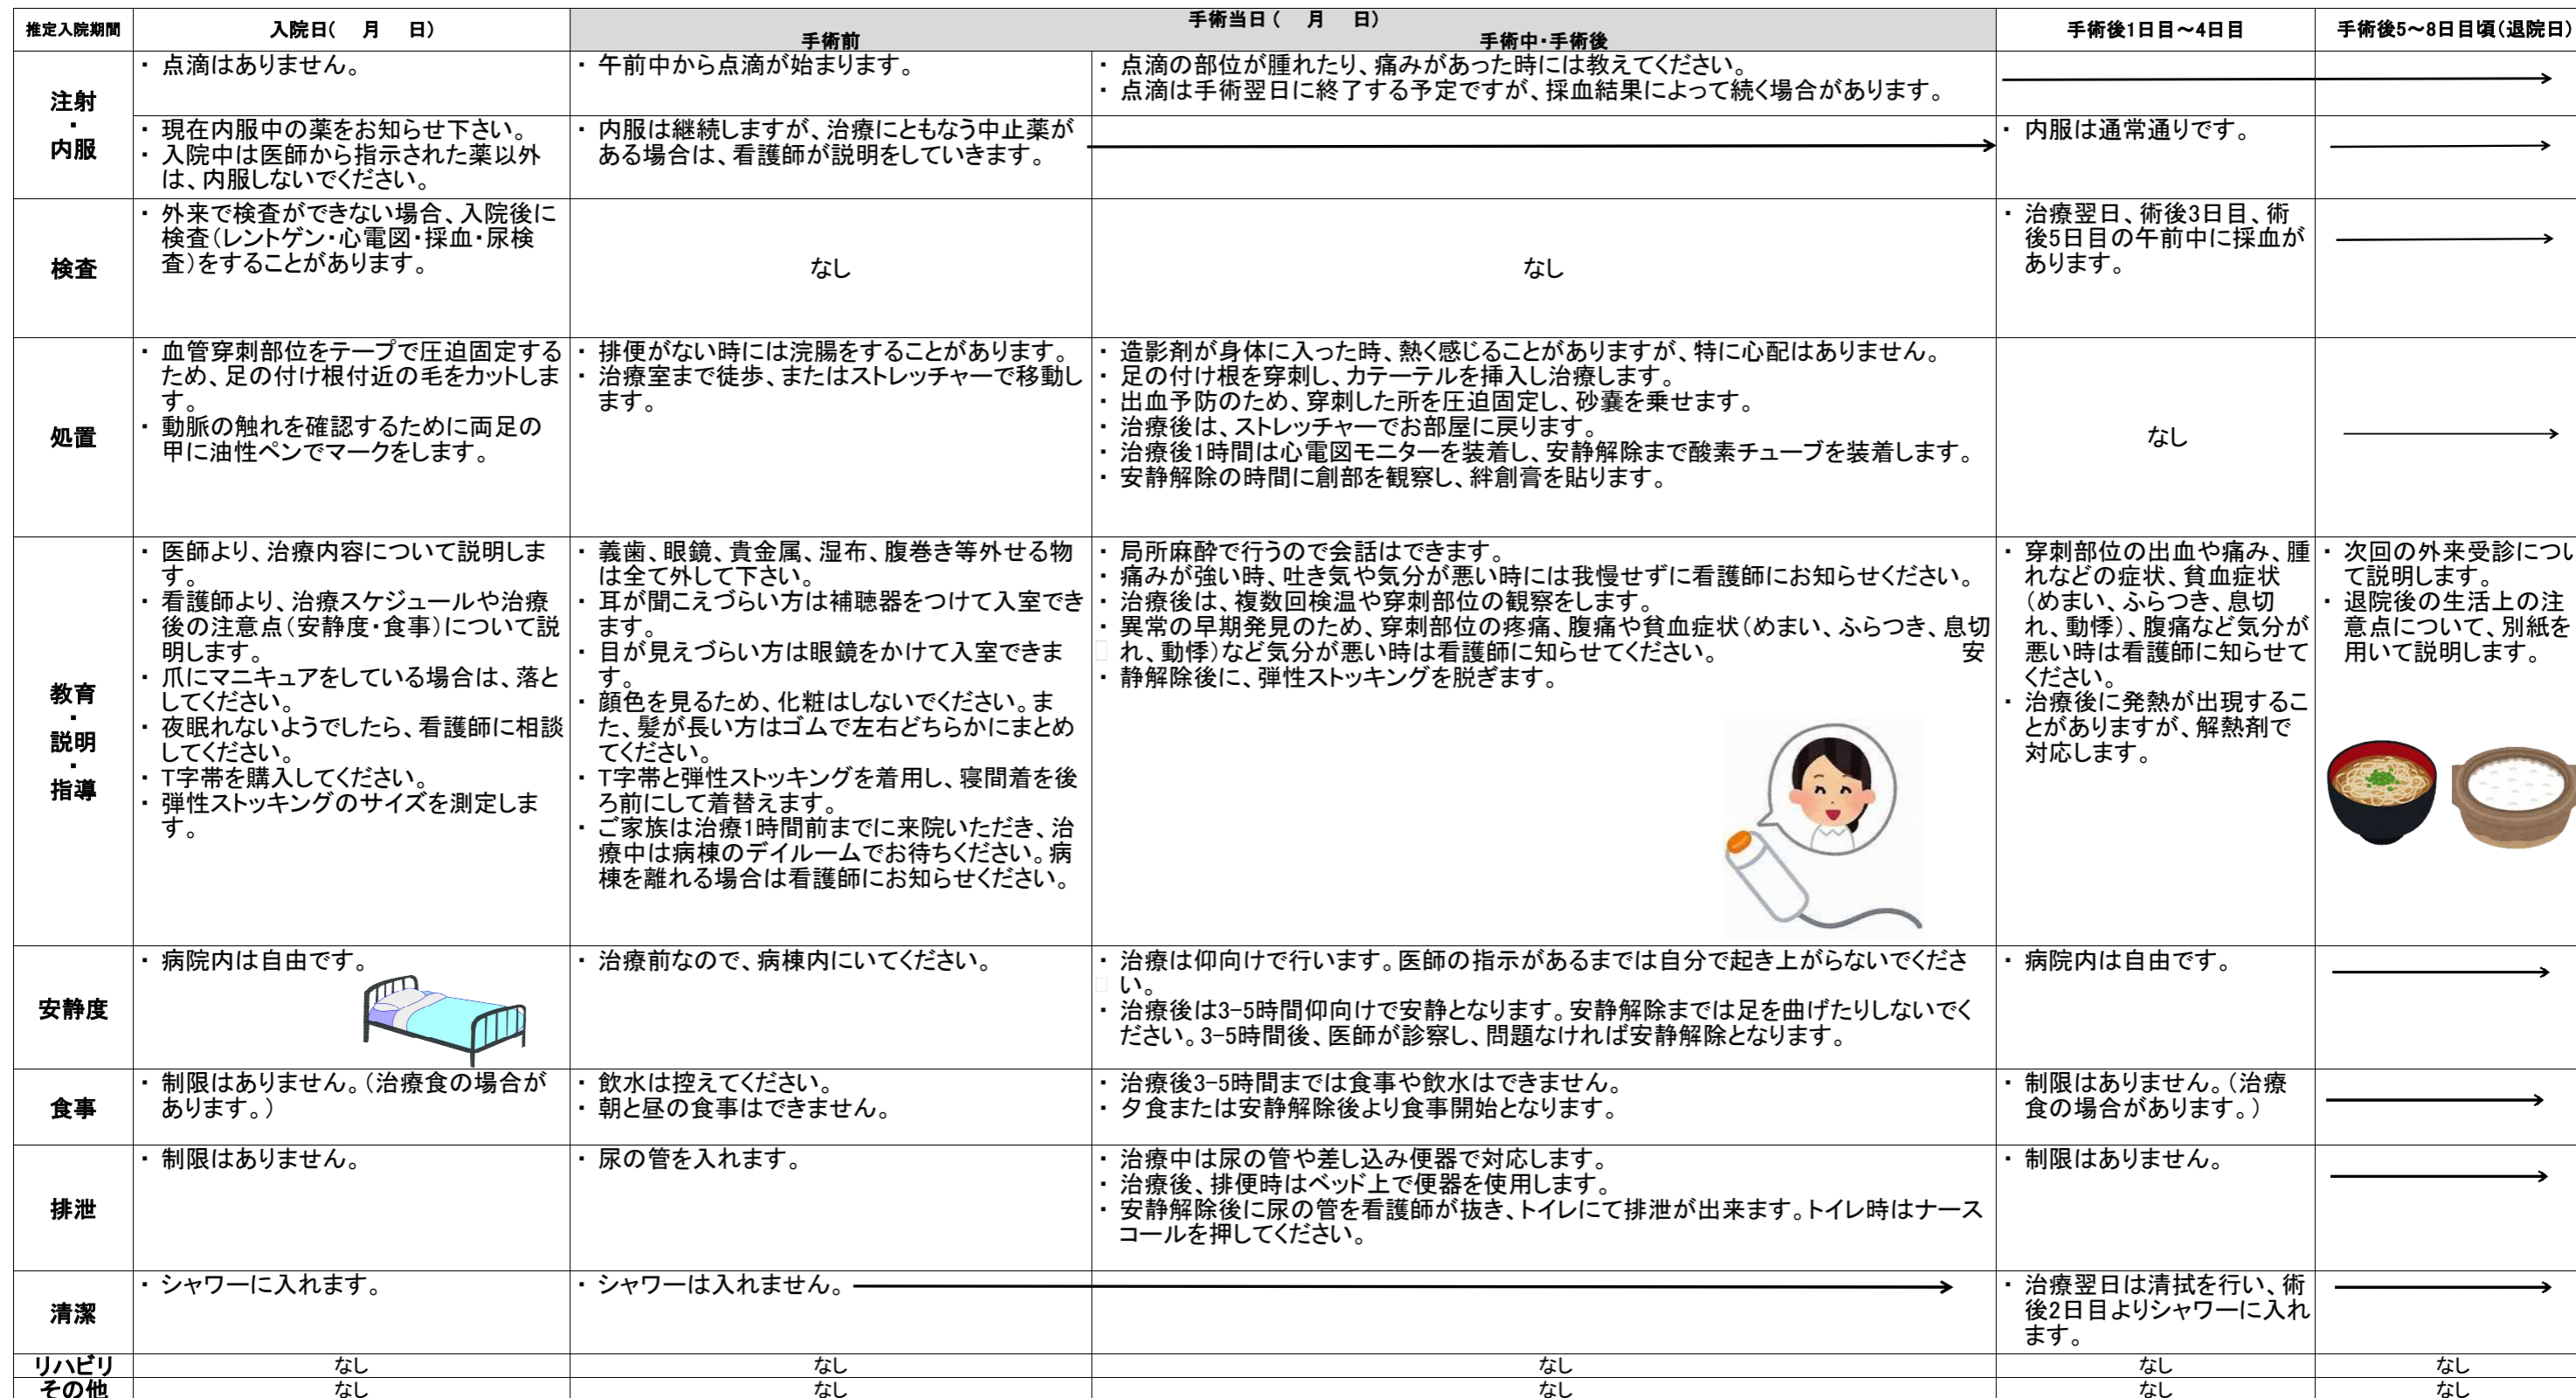 推定入院期間
入院日(　月　日)
手術当日(　月　日)
手術前
手術中・手術後
手術後1日目～4日目
手術後5～8日目頃(退院日)
注射
・
内服
・ 点滴はありません。
・ 午前中から点滴が始まります。
・ 点滴の部位が腫れたり、痛みがあった時には教えてください。
・ 点滴は手術翌日に終了する予定ですが、採血結果によって続く場合があります。
・ 現在内服中の薬をお知らせ下さい。
・ 入院中は医師から指示された薬以外
は、内服しないでください。
・ 内服は継続しますが、治療にともなう中止薬が
ある場合は、看護師が説明をしていきます。
・ 内服は通常通りです。
検査
・ 外来で検査ができない場合、入院後に
検査(レントゲン・心電図・採血・尿検
査)をすることがあります。
なし
なし
・ 治療翌日、術後3日目、術
後5日目の午前中に採血が
あります。
処置
・ 血管穿刺部位をテープで圧迫固定する
ため、足の付け根付近の毛をカットしま
す。
・ 動脈の触れを確認するために両足の
甲に油性ペンでマークをします。
・ 排便がない時には浣腸をすることがあります。
・ 治療室まで徒歩、またはストレッチャーで移動し
ます。
・ 造影剤が身体に入った時、熱く感じることがありますが、特に心配はありません。
・ 足の付け根を穿刺し、カテーテルを挿入し治療します。
・ 出血予防のため、穿刺した所を圧迫固定し、砂嚢を乗せます。
・ 治療後は、ストレッチャーでお部屋に戻ります。
・ 治療後1時間は心電図モニターを装着し、安静解除まで酸素チューブを装着します。
・ 安静解除の時間に創部を観察し、絆創膏を貼ります。
なし
教育
・
説明
・
指導
・ 医師より、治療内容について説明しま
す。
・ 看護師より、治療スケジュールや治療
後の注意点(安静度・食事)について説
明します。
・ 爪にマニキュアをしている場合は、落と
してください。
・ 夜眠れないようでしたら、看護師に相談
してください。
・ T字帯を購入してください。
・ 弾性ストッキングのサイズを測定しま
す。
・ 義歯、眼鏡、貴金属、湿布、腹巻き等外せる物
は全て外して下さい。
・ 耳が聞こえづらい方は補聴器をつけて入室でき
ます。
・ 目が見えづらい方は眼鏡をかけて入室できま
す。
・ 顔色を見るため、化粧はしないでください。ま
た、髪が長い方はゴムで左右どちらかにまとめ
てください。
・ T字帯と弾性ストッキングを着用し、寝間着を後
ろ前にして着替えます。
・ ご家族は治療1時間前までに来院いただき、治
療中は病棟のデイルームでお待ちください。病
棟を離れる場合は看護師にお知らせください。
・ 局所麻酔で行うので会話はできます。
・ 痛みが強い時、吐き気や気分が悪い時には我慢せずに看護師にお知らせください。
・ 治療後は、複数回検温や穿刺部位の観察をします。
・ 異常の早期発見のため、穿刺部位の疼痛、腹痛や貧血症状(めまい、ふらつき、息切
れ、動悸)など気分が悪い時は看護師に知らせてください。　安
・ 静解除後に、弾性ストッキングを脱ぎます。
・ 穿刺部位の出血や痛み、腫
れなどの症状、貧血症状
(めまい、ふらつき、息切
れ、動悸)、腹痛など気分が
悪い時は看護師に知らせて
ください。
・ 治療後に発熱が出現するこ
とがありますが、解熱剤で
対応します。
・ 次回の外来受診につい
て説明します。
・ 退院後の生活上の注
意点について、別紙を
用いて説明します。
安静度
・ 病院内は自由です。
・ 治療前なので、病棟内にいてください。
・ 治療は仰向けで行います。医師の指示があるまでは自分で起き上がらないでくださ
い。
・ 治療後は3-5時間仰向けで安静となります。安静解除までは足を曲げたりしないでく
ださい。3-5時間後、医師が診察し、問題なければ安静解除となります。
・ 病院内は自由です。
食事
・ 制限はありません。(治療食の場合が
あります。)
・ 飲水は控えてください。
・ 朝と昼の食事はできません。
・ 治療後3-5時間までは食事や飲水はできません。
・ 夕食または安静解除後より食事開始となります。
・ 制限はありません。(治療
食の場合があります。)
排泄
・ 制限はありません。
・ 尿の管を入れます。
・ 治療中は尿の管や差し込み便器で対応します。
・ 治療後、排便時はベッド上で便器を使用します。
・ 安静解除後に尿の管を看護師が抜き、トイレにて排泄が出来ます。トイレ時はナース
コールを押してください。
・ 制限はありません。
清潔
・ シャワーに入れます。
・ シャワーは入れません。
・ 治療翌日は清拭を行い、術
後2日目よりシャワーに入れ
ます。
リハビリ
なし
なし
なし
なし
なし
その他
なし
なし
なし
なし
なし